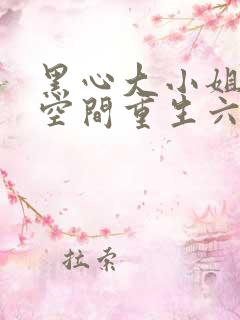 黑心大小姐
空間重生六
拉索